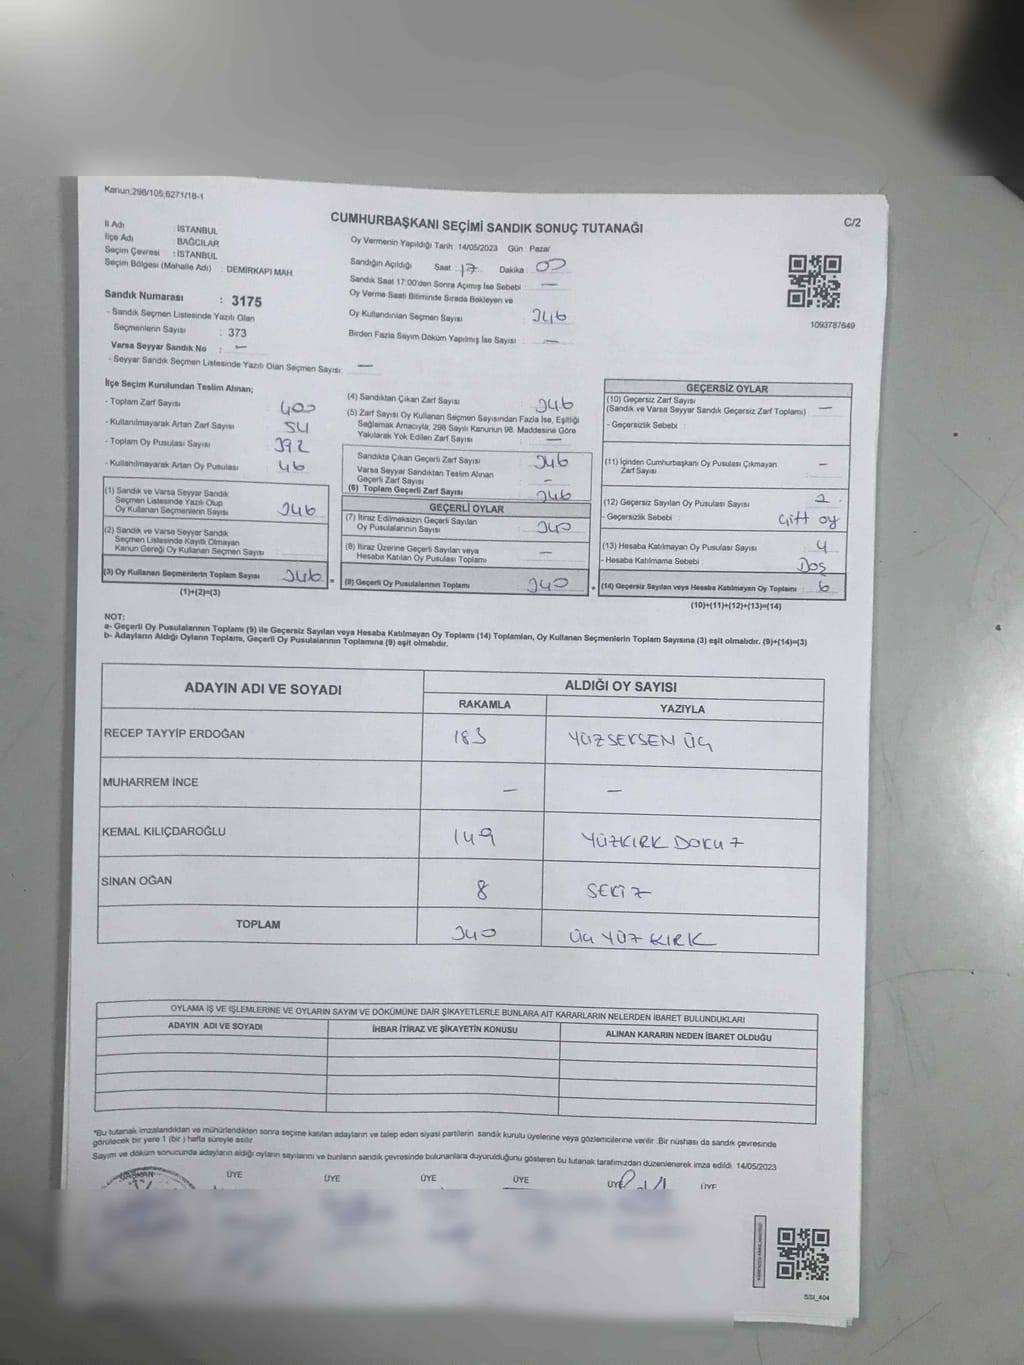 Kanun;298/105;6271/18-1
CUMHURBAŞKANI SEÇİMİ SANDIK SONUÇ TUTANAĞI
C/2
İl Adı : İSTANBUL
İlçe Adı : BAĞCILAR
Seçim Çevresi : İSTANBUL
Seçim Bölgesi (Mahalle Adı) : DEMİRKAPI MAH
Sandık Numarası : 3175
- Sandık Seçmen Listesinde Yazılı Olan
Seçmenlerin Sayısı : 373
Varsa Seyyar Sandık No : —
- Seyyar Sandık Seçmen Listesinde Yazılı Olan Seçmen Sayısı: —
Oy Vermenin Yapıldığı Tarih :14/05/2023 Gün : Pazar
Sandığın Açıldığı Saat : 17 Dakika : 00
Sandık Saat 17:00'den Sonra Açımış İse Sebebi : —
Oy Verme Saati Bitiminde Sırada Bekleyen ve
Oy Kullandırılan Seçmen Sayısı : 346
Birden Fazla Sayım Döküm Yapılmış İse Sayısı : —
1093787649
İlçe Seçim Kurulundan Teslim Alınan;
- Toplam Zarf Sayısı : 400
- Kullanılmayarak Artan Zarf Sayısı : 54
- Toplam Oy Pusulası Sayısı : 392
- Kullanılmayarak Artan Oy Pusulası : 46
(1) Sandık ve Varsa Seyyar Sandık
Seçmen Listesinde Yazılı Olup
Oy Kullanan Seçmenlerin Sayısı : 346
(2) Sandık ve Varsa Seyyar Sandık
Seçmen Listesinde Kayıtlı Olmayan
Kanun Gereği Oy Kullanan Seçmen Sayısı :
(3) Oy Kullanan Seçmenlerin Toplam Sayısı : 346
(1)+(2)=(3)
=
(4) Sandıktan Çıkan Zarf Sayısı : 346
(5) Zarf Sayısı Oy Kullanan Seçmen Sayısından Fazla İse, Eşitliği
Sağlamak Amacıyla, 298 Sayılı Kanunun 98. Maddesine Göre
Yakılarak Yok Edilen Zarf Sayısı : —
Sandıkta Çıkan Geçerli Zarf Sayısı : 346
Varsa Seyyar Sandıktan Teslim Alınan
Geçerli Zarf Sayısı : —
(6) Toplam Geçerli Zarf Sayısı : 346
GEÇERLİ OYLAR
(7) İtiraz Edilmeksizin Geçerli Sayılan
Oy Pusulalarının Sayısı : 340
(8) İtiraz Üzerine Geçerli Sayılan veya
Hesaba Katılan Oy Pusulası Toplamı : —
(9) Geçerli Oy Pusulalarının Toplamı : 340
+
GEÇERSİZ OYLAR
(10) Geçersiz Zarf Sayısı
(Sandık ve Varsa Seyyar Sandık Geçersiz Zarf Toplamı) : —
- Geçersizlik Sebebi :
(11) İçinden Cumhurbaşkanı Oy Pusulası Çıkmayan
Zarf Sayısı : —
(12) Geçersiz Sayılan Oy Pusulası Sayısı : 2
- Geçersizlik Sebebi : Çift oy
(13) Hesaba Katılmayan Oy Pusulası Sayısı : 4
- Hesaba Katılmama Sebebi : Boş
(14) Geçersiz Sayılan veya Hesaba Katılmayan Oy Toplamı : 6
(10)+(11)+(12)+(13)=(14)
NOT:
a- Geçerli Oy Pusulalarının Toplamı (9) ile Geçersiz Sayılan veya Hesaba Katılmayan Oy Toplamı (14) Toplamları, Oy Kullanan Seçmenlerin Toplam Sayısına (3) eşit olmalıdır. (9)+(14)=(3)
b- Adayların Aldığı Oyların Toplamı, Geçerli Oy Pusulalarının Toplamına (9) eşit olmalıdır.
ADAYIN ADI VE SOYADI
ALDIĞI OY SAYISI
RAKAMLA YAZIYLA
RECEP TAYYİP ERDOĞAN 183 YÜZSEKSEN ÜÇ
MUHARREM İNCE — —
KEMAL KILIÇDAROĞLU 149 YÜZKIRK DOKUZ
SİNAN OĞAN 8 SEKİZ
TOPLAM 340 ÜÇ YÜZ KIRK
OYLAMA İŞ VE İŞLEMLERİNE VE OYLARIN SAYIM VE DÖKÜMÜNE DAİR ŞİKAYETLERLE BUNLARA AİT KARARLARIN NELERDEN İBARET BULUNDUKLARI
ADAYIN ADI VE SOYADI İHBAR İTİRAZ VE ŞİKAYETİN KONUSU ALINAN KARARIN NEDEN İBARET OLDUĞU
*Bu tutanak imzalandıktan ve mühürlendikten sonra seçime katılan adayların ve talep eden siyasi partilerin sandık kurulu üyelerine veya gözlemcilerine verilir .Bir nüshası da sandık çevresinde
görülecek bir yere 1 (bir ) hafta süreyle asılır.
Sayım ve döküm sonucunda adayların aldığı oyların sayılarını ve bunların sandık çevresinde bulunanlara duyurulduğunu gösteren bu tutanak tarafımızdan düzenlenerek imza edildi. 14/05/2023
BAŞKAN ÜYE ÜYE ÜYE ÜYE ÜYE ÜYE